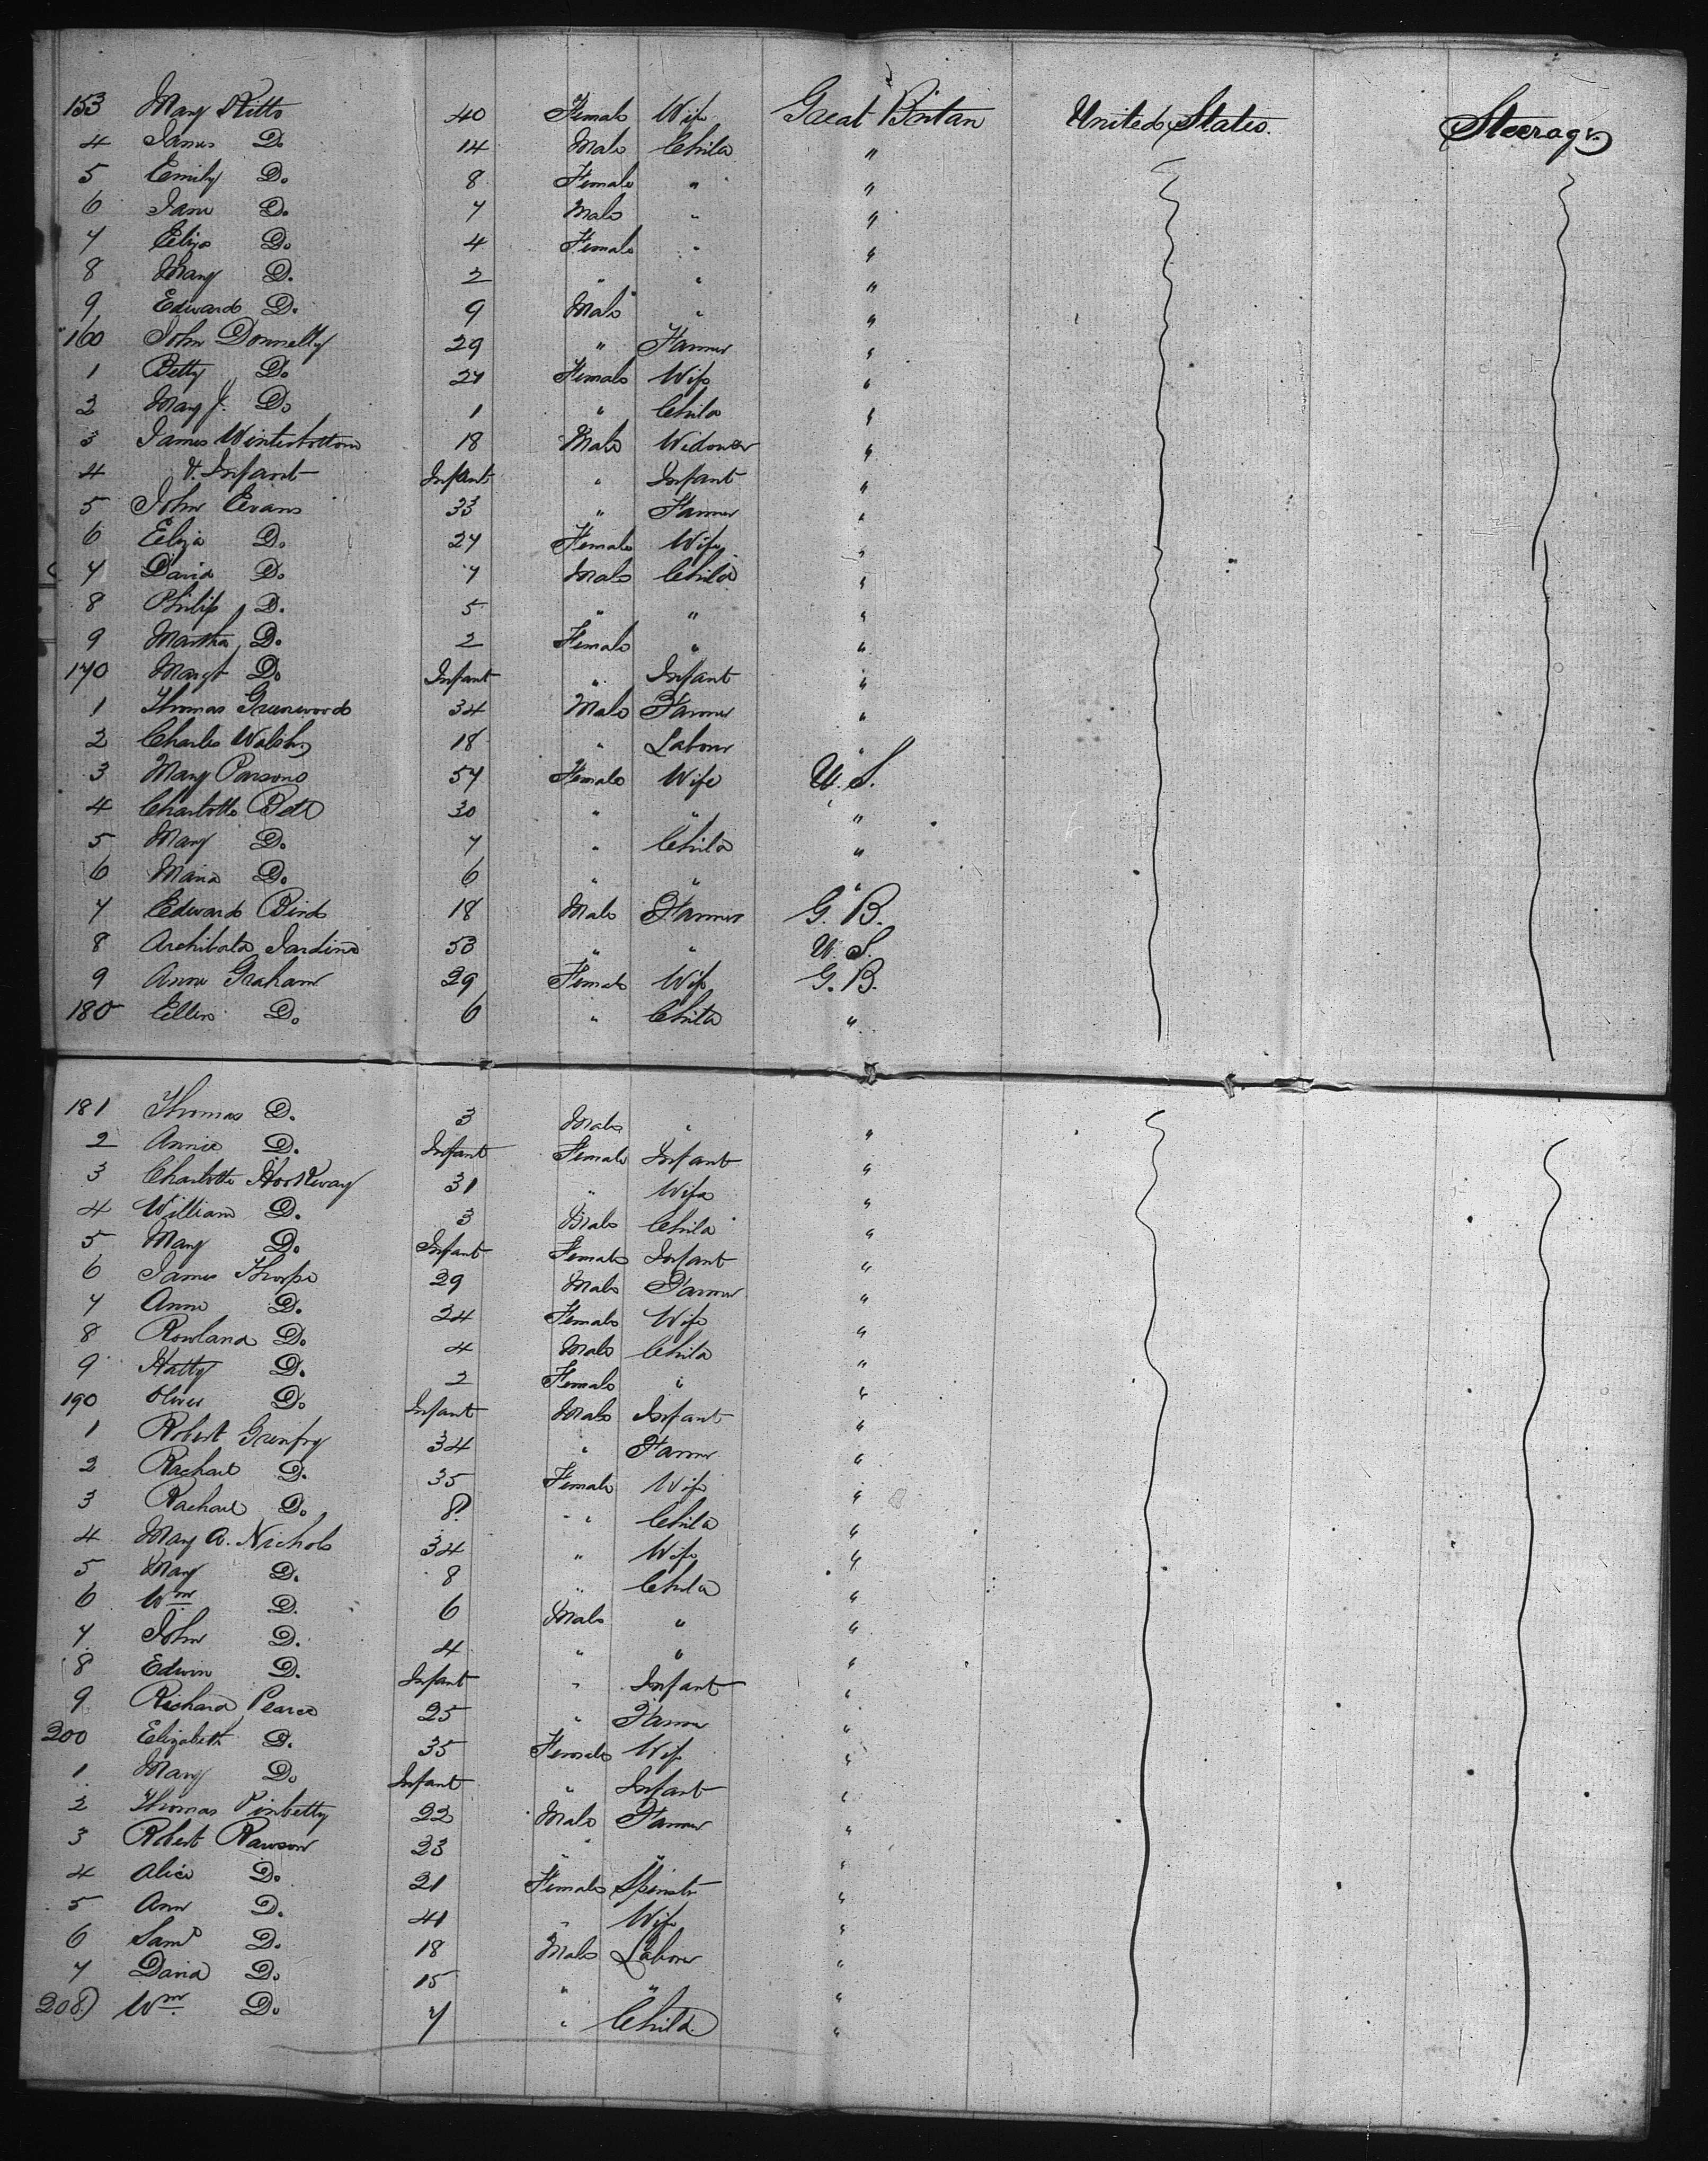 153 Mary Kitto 40 Female Wife Great Britan United States. Steerage
4 James Do 14 Male Child "
5 Emily Do 8 Female " "
6 Jane Do 7 Male " "
7 Eliza Do 4 Female " "
8 Mary Do. 2 " " "
9 Edward Do. 9 Male " "
160 John Donnelly 29 " Farmer "
1 Betty Do 27 Female Wife "
2 Mary J. Do 1 " Child "
3 James Winterbottom 18 Male Widower "
4 & Infant Infant " Infant "
5 John Evans 33 " Farmer "
6 Eliza Do 27 Female Wife "
7 David Do 7 Male Child "
8 Philip Do. 5 " " "
9 Martha Do 2 Female " "
170 Margt Do Infant " Infant "
1 Thomas Greenwood 34 Male Farmer "
2 Charles Walsh 18 " Labour "
3 Mary Parsons 57 Female Wife U. S.
4 Charlotte 30 " " "
5 Mary Do. 7 " Child "
6 Maria Do. 6 " " "
7 Edward Bird 18 Male Farmer G. B.
8 Archibald Jardine 53 " " U. S.
9 Anne Graham 29 Female Wife G. B.
180 Ellen Do 6 " Child "
181 Thomas Do. 3 Male " "
2 Annie Do. Infant Female Infant "
3 Charlotte Hookway 31 " Wife "
4 William Do. 3 Male Child "
5 Mary Do. Infant Female Infant "
6 James Thorpe 29 Male Farmer "
7 Anne Do. 24 Female Wife "
8 Rowland Do 4 Male Child "
9 Hatty Do. 2 Female " "
190 Oliver Do Infant Male Infant "
1 Robert 34 " Farmer "
2 Rachael Do. 35 Female Wife "
3 Rachael Do. 8 " Child "
4 Mary A. Nichols 34 " Wife "
5 Mary Do. 8 " Child "
6 Wm Do. 6 Male " "
7 John Do. 4 " " "
8 Edwin Do. Infant " Infant "
9 Richard Pearce 25 " Farmer "
200 Elizabeth Do. 35 Female Wife "
1 Mary Do Infant " Infant "
2 Thomas 22 Male Farmer "
3 Robert Rawson 23 " " "
4 Alice Do. 21 Female Spinstr "
5 Ann Do. 41 " Wife "
6 Saml Do. 18 Male Labour "
7 David Do 15 " " "
208 Wm Do 7 " Child "